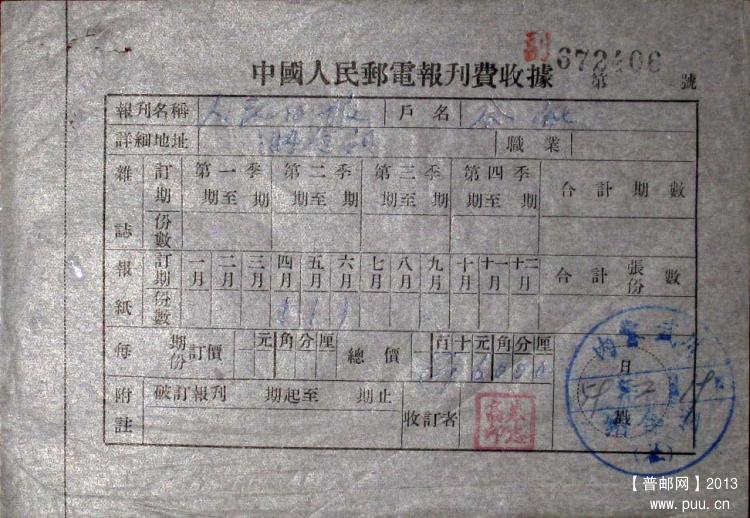 副 672406
中國人民郵電報刊費收據 第 號
報刊名稱 人民日報 戶名
詳細地址 職業
雜誌 訂期 第一季 期至 期 第二季 期至 期 第三季 期至 期 第四季 期至 期 合計 期數
份數
報紙 訂期 一月 二月 三月 四月 五月 六月 七月 八月 九月 十月 十一月 十二月 合計 張份數
份數 1 1 1
每 期份 訂價 元角分厘 總價 百十元角分厘
附註 破訂報刊 期起至 期止 收訂者
日戳
【普邮网】2013
www.puu.cn